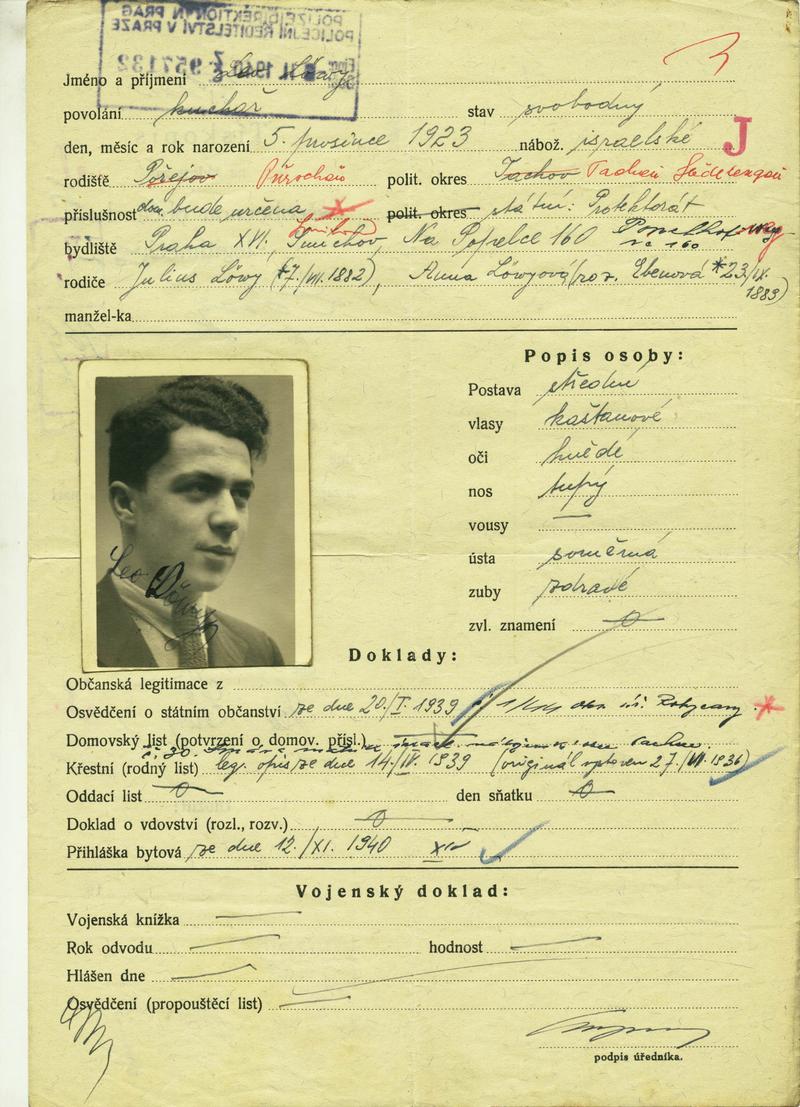 POLIZEIDIREKTION IN PRAG
POLICEJNÍ ŘEDITELSTVÍ V PRAZE
957132
Jméno a příjmení Leo Löwy
povolání kuchař stav svobodný
den, měsíc a rok narození 5. prosince 1923 nábož. israelské J
rodiště Pořejov polit. okres Tachov Tachau Sudetengau
příslušnost bude určena polit. okres státní: Protektorát
bydliště Praha XVI, Smíchov, Na Popelce 160
№ 160
rodiče Julius Löwy (*7/VII. 1882), Anna Löwyová (roz. Ebenová *23/IX. 1883)
manžel-ka
Popis osoby:
Postava střední
vlasy kaštanové
oči hnědé
nos tupý
vousy —
ústa souměrná
zuby zdravé
zvl. znamení 0
Leo Löwy
Doklady:
Občanská legitimace z
Osvědčení o státním občanství ze dne 20./I. 1939 okr. úř. Rokycany
Domovský list (potvrzení o domov. přísl.)
Křestní (rodný list) leg. opis ze dne 14./IV. 1939 (originál vystaven 27./VII. 1936)
Oddací list 0 den sňatku 0
Doklad o vdovství (rozl., rozv.) 0
Přihláška bytová ze dne 12./XI. 1940
Vojenský doklad:
Vojenská knížka —
Rok odvodu — hodnost —
Hlášen dne —
Osvědčení (propouštěcí list) —
podpis úředníka.